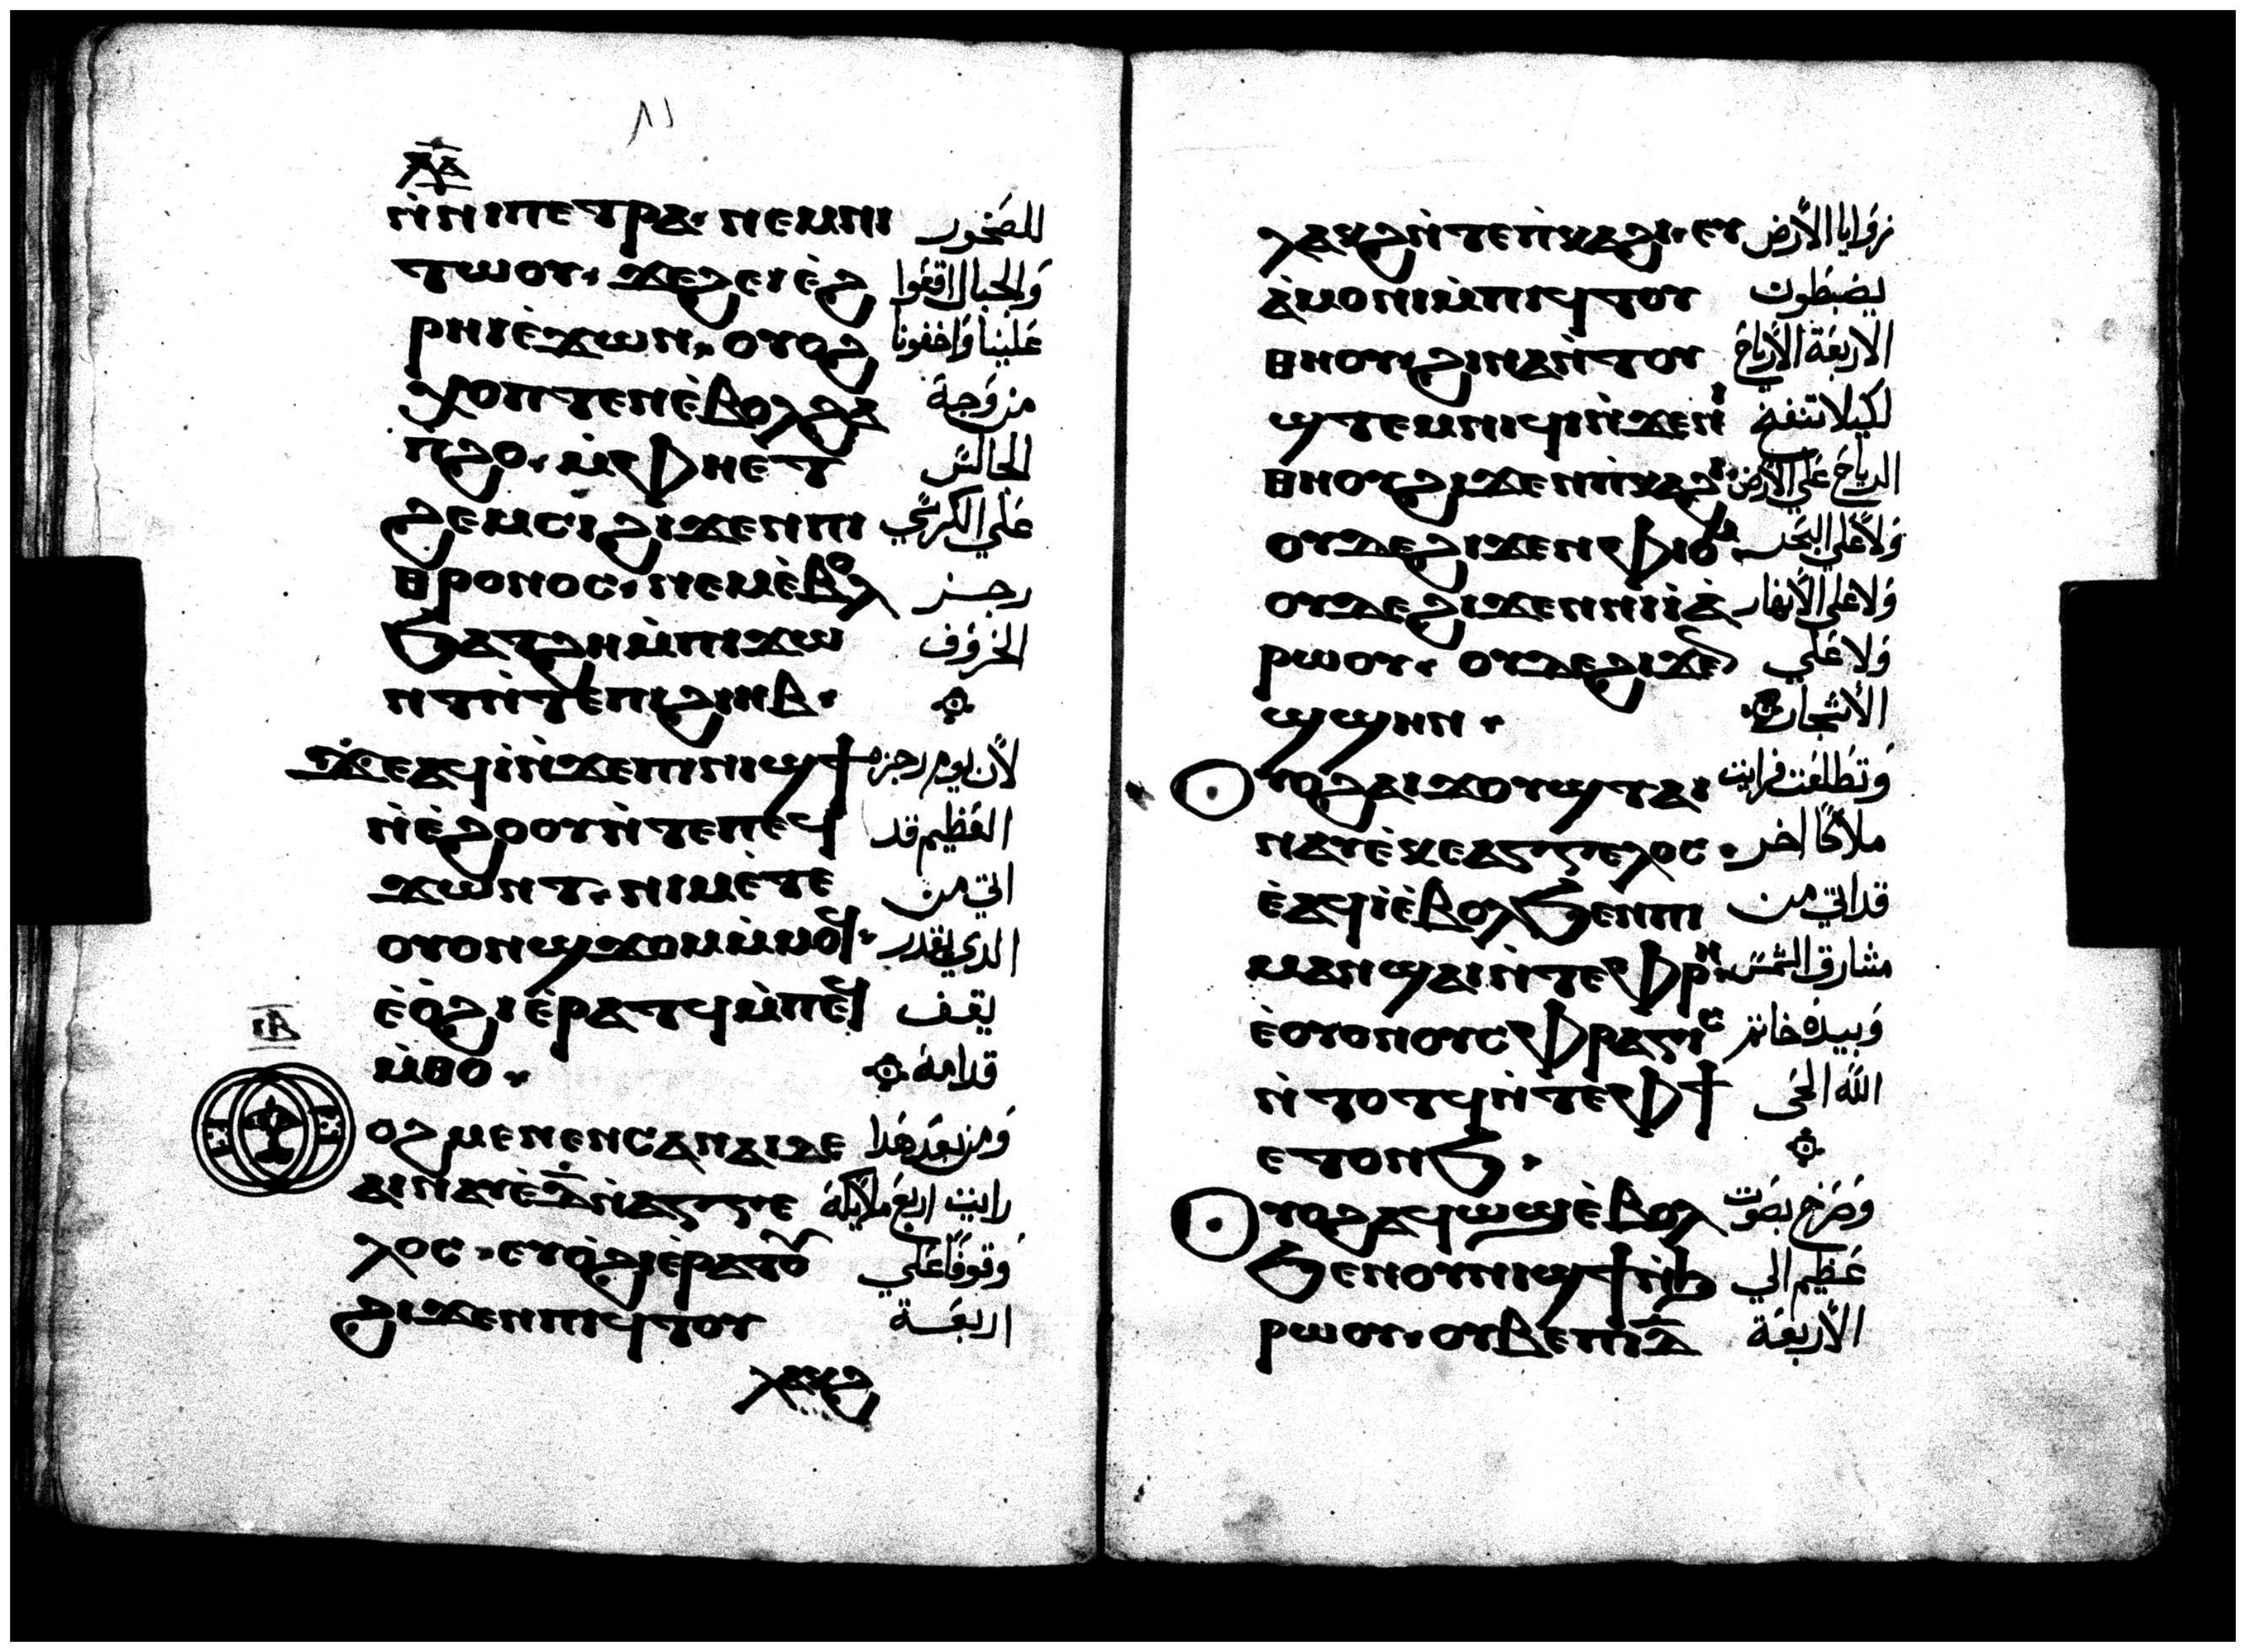 ٨١
ⲛ̀ⲛⲓⲡⲉⲧⲣⲁ· ⲛⲉⲙⲛⲓ للصخور
ⲧⲱⲟⲩ· ϫⲉϩⲉⲓⲉ̀ϩ والجبال اقعوا
ⲣⲏⲓⲉ̀ϫⲱⲛ· ⲟⲩⲟϩ علينا واخفونا
ⲭⲟⲡⲧⲉⲛⲉ̀ⲃⲟⲗϩⲁ من وجه
ⲡϩⲟ· ⲙ̀ⲫⲏⲉⲧ الجالس
ϩⲉⲙⲥⲓϩⲓϫⲉⲛⲡⲓ على الكرسي
ⲑⲣⲟⲛⲟⲥ· ⲛⲉⲙⲉ̀ⲃⲟⲗ رجز
ϧⲁⲧϩⲏⲙ̀ⲡⲓϫⲱ الخروف
ⲛⲧⲛ̀ⲧⲉⲡⲓϩⲓⲏⲃ·
ϫⲉⲁϥⲓ̀ⲛ̀ϫⲉⲡⲓⲛⲓϣϯ لان يوم رجزه
ⲛ̀ⲉ̀ϩⲟⲟⲩⲛ̀ⲧⲉⲡⲉϥ العظيم قد
ϫⲱⲛⲧ· ⲛⲓⲙⲉ̀ⲧⲉ اتي من
ⲟⲩⲟⲛϣϫⲟⲙⲙ̀ⲙⲟϥ· الذي يقدر
ⲉ̀ⲟ̀ϩⲓⲉ̀ⲣⲁⲧϥⲙ̀ⲡⲉϥ يقف
ⲙ̀ⲑⲟ· قدامه
ⲓⲃ
ⲟϩⲙⲉⲛⲉⲛⲥⲁⲛⲁⲓⲇⲉ ومن بعد هذا
ⲁⲓⲛⲁⲩⲉ̀ⲇ̅ⲛ̀ⲁⲅⲅⲉ رايت اربع ملايكة
ⲗⲟⲥ· ⲉⲩⲟ̀ϩⲓⲉ̀ⲣⲁⲧⲟⲩ وقوفا علي
ϩⲓϫⲉⲛⲡⲓϥⲧⲟⲩ اربعة
ⲗⲁⲕϩ
ⲗⲁⲕϩⲛ̀ⲧⲉⲡ̀ⲕⲁϩⲓ· ⲉⲩ زوايا الارض
ⲁ̀ⲙⲟⲛⲓⲙ̀ⲡⲓϥⲧⲟⲩ يضبطون
ⲑⲏⲟⲩ· ϩⲓⲛⲁⲛ̀ⲧⲟⲩ الاربعة الارياح
ϣⲧⲉⲙⲛⲓϥⲓⲛ̀ϫⲉⲛⲓ لكيلا تنفخ
ⲑⲏⲟⲩϩⲓϫⲉⲛⲡ̀ⲕⲁϩⲓ الرياح علي الارض
ⲟⲩⲇⲉϩⲓϫⲉⲛⲫⲓⲟⲙ· ولا علي البحر
ⲟⲩⲇⲉϩⲓϫⲉⲛⲛⲓⲓ̀ⲁ̀ ولا علي الانهار
ⲣⲱⲟⲩ· ⲟⲩⲇⲉϩⲓϫⲉⲛ ولا علي
ϣϣⲏⲛ· الاشجار
ⲩⲟϩⲁⲓϫⲟⲩϣⲧⲁⲓ وتطلعت فرايت
ⲛⲁⲩⲉ̀ⲕⲉⲁⲅⲅⲉⲗⲟⲥ· ملاكا اخر
ⲉ̀ⲁϥⲓ̀ⲉ̀ⲃⲟⲗϧⲉⲛⲡⲓ قد اتي من
ⲙⲁⲛϣⲁⲓⲛ̀ⲧⲉⲫⲣⲏ· مشارق الشمس
ⲉ̀ⲟⲩⲟⲛⲟⲩⲥⲫⲣⲁⲅⲓⲥ وبيده خاتم
ⲛ̀ⲧⲟⲧϥⲛ̀ⲧⲉⲫϯ الله الحي
ⲉⲧⲟⲛϧ·
ⲩⲟϩⲁϥⲱϣⲉ̀ⲃⲟⲗ وصرخ بصوت
ϧⲉⲛⲟⲩⲛⲓϣϯⲛ̀ϧ عظيم الي
ⲣⲱⲟⲩ· ⲟⲩⲃⲉⲡⲓⲇ̅ الاربعة